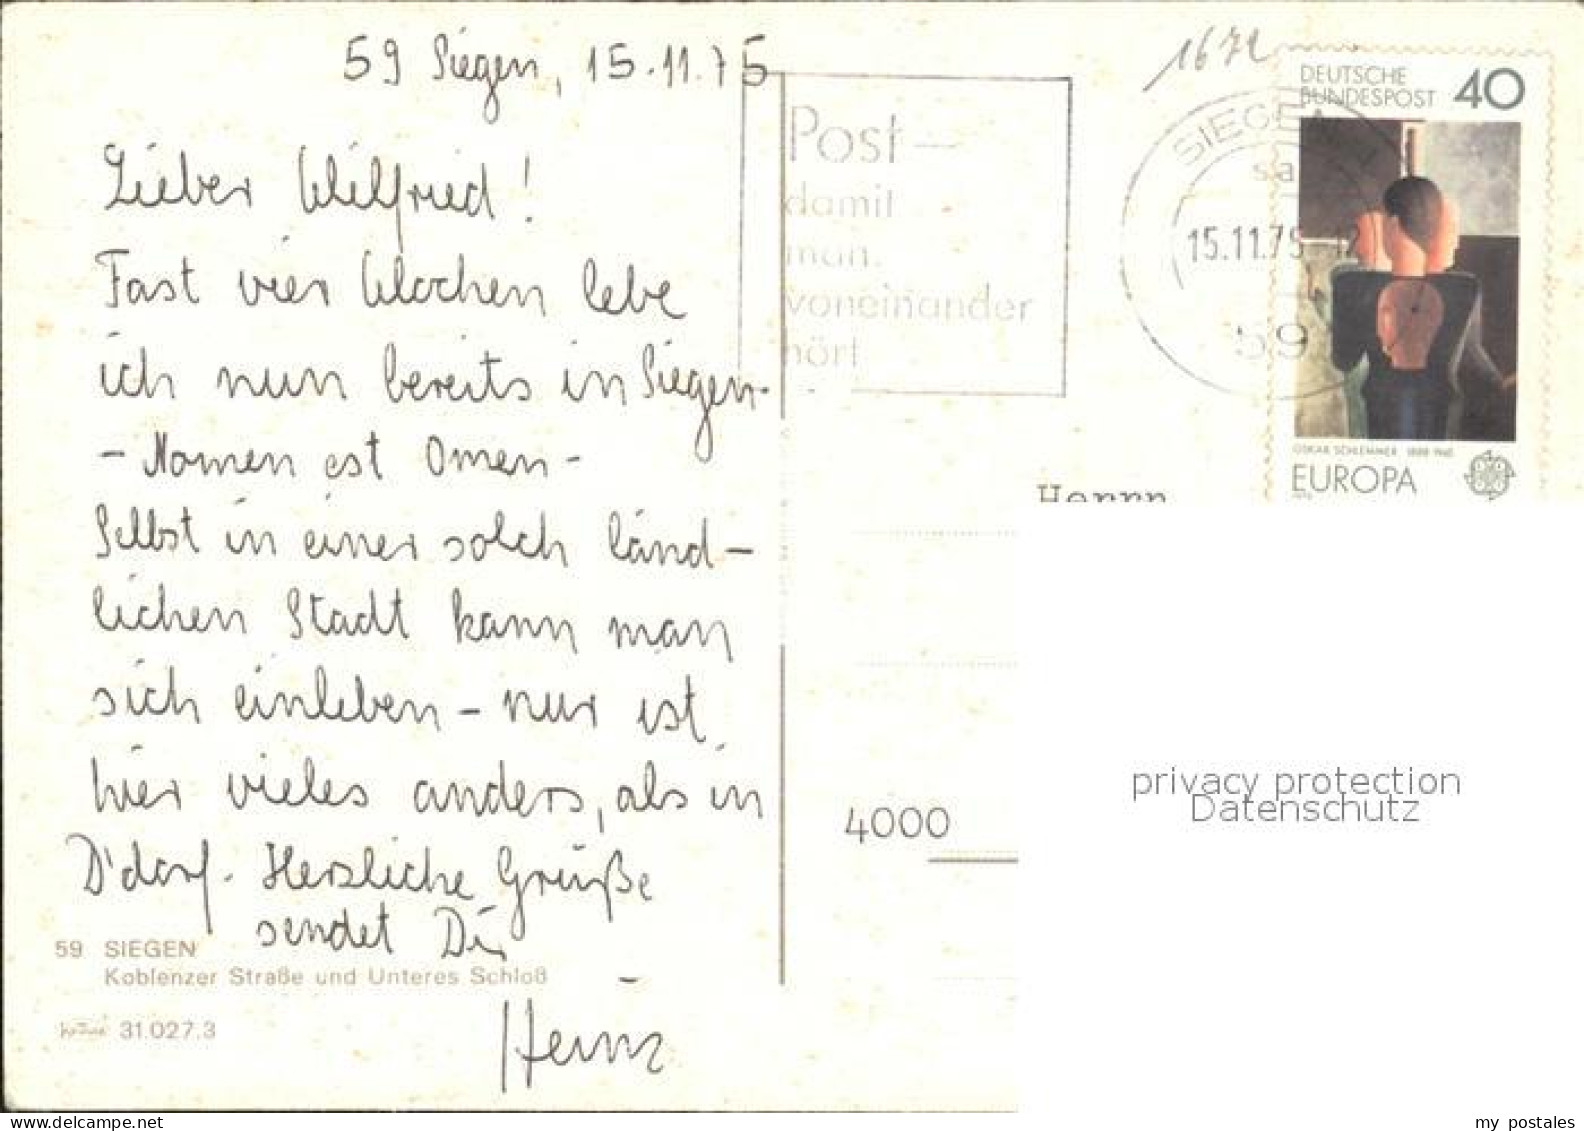 59 Siegen, 15.11.75
Lieber Wilfried!
Fast vier Wochen lebe
ich nun bereits in Siegen-
- Nomen est Omen -
Selbst in einer solch länd-
lichen Stadt kann man
sich einleben - nur ist
hier vieles anders, als in
D'dorf. Herzliche Grüße
sendet Dir
Heinz
59 SIEGEN
Koblenzer Straße und Unteres Schloß
31.027.3
Post-
damit
man
voneinander
hört
1672
SIEGEN 1
sa
15.11.75-12
59
DEUTSCHE
BUNDESPOST 40
OSKAR SCHLEMMER 1888-1943
EUROPA
Herrn
4000
privacy protection
Datenschutz
delcampe.net
my_postales